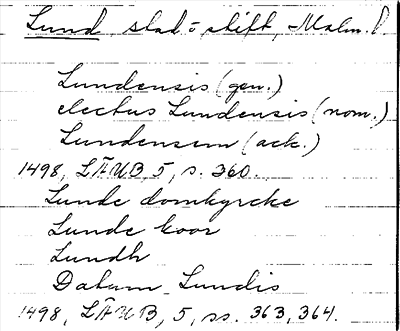 Lund stad o stift, Malm. l.
Lundensis (gen.)
electus Lundensis (nom.)
Lundensem (ack.)
1498, LÄUB, 5, s. 360.
Lunde domkyrcke
Lunde koor
Lundh
Datum Lundis
1498, LÄUB, 5, ss. 363, 364.